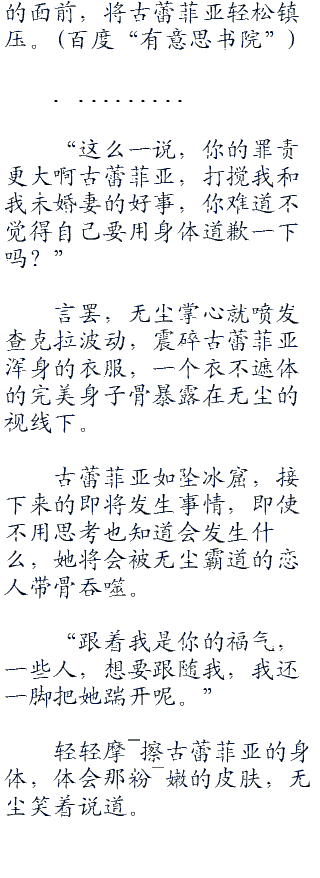 的面前，将古蕾菲亚轻松镇
压。(百度“有意思书院”)
．．．．．．．．．．
“这么一说，你的罪责
更大啊古蕾菲亚，打搅我和
我未婚妻的好事，你难道不
觉得自己要用身体道歉一下
吗？”
言罢，无尘掌心就喷发
查克拉波动，震碎古蕾菲亚
浑身的衣服，一个衣不遮体
的完美身子骨暴露在无尘的
视线下。
古蕾菲亚如坠冰窟，接
下来的即将发生事情，即使
不用思考也知道会发生什
么，她将会被无尘霸道的恋
人带骨吞噬。
“跟着我是你的福气，
一些人，想要跟随我，我还
一脚把她踹开呢。”
轻轻摩¯擦古蕾菲亚的身
体，体会那粉¯嫩的皮肤，无
尘笑着说道。